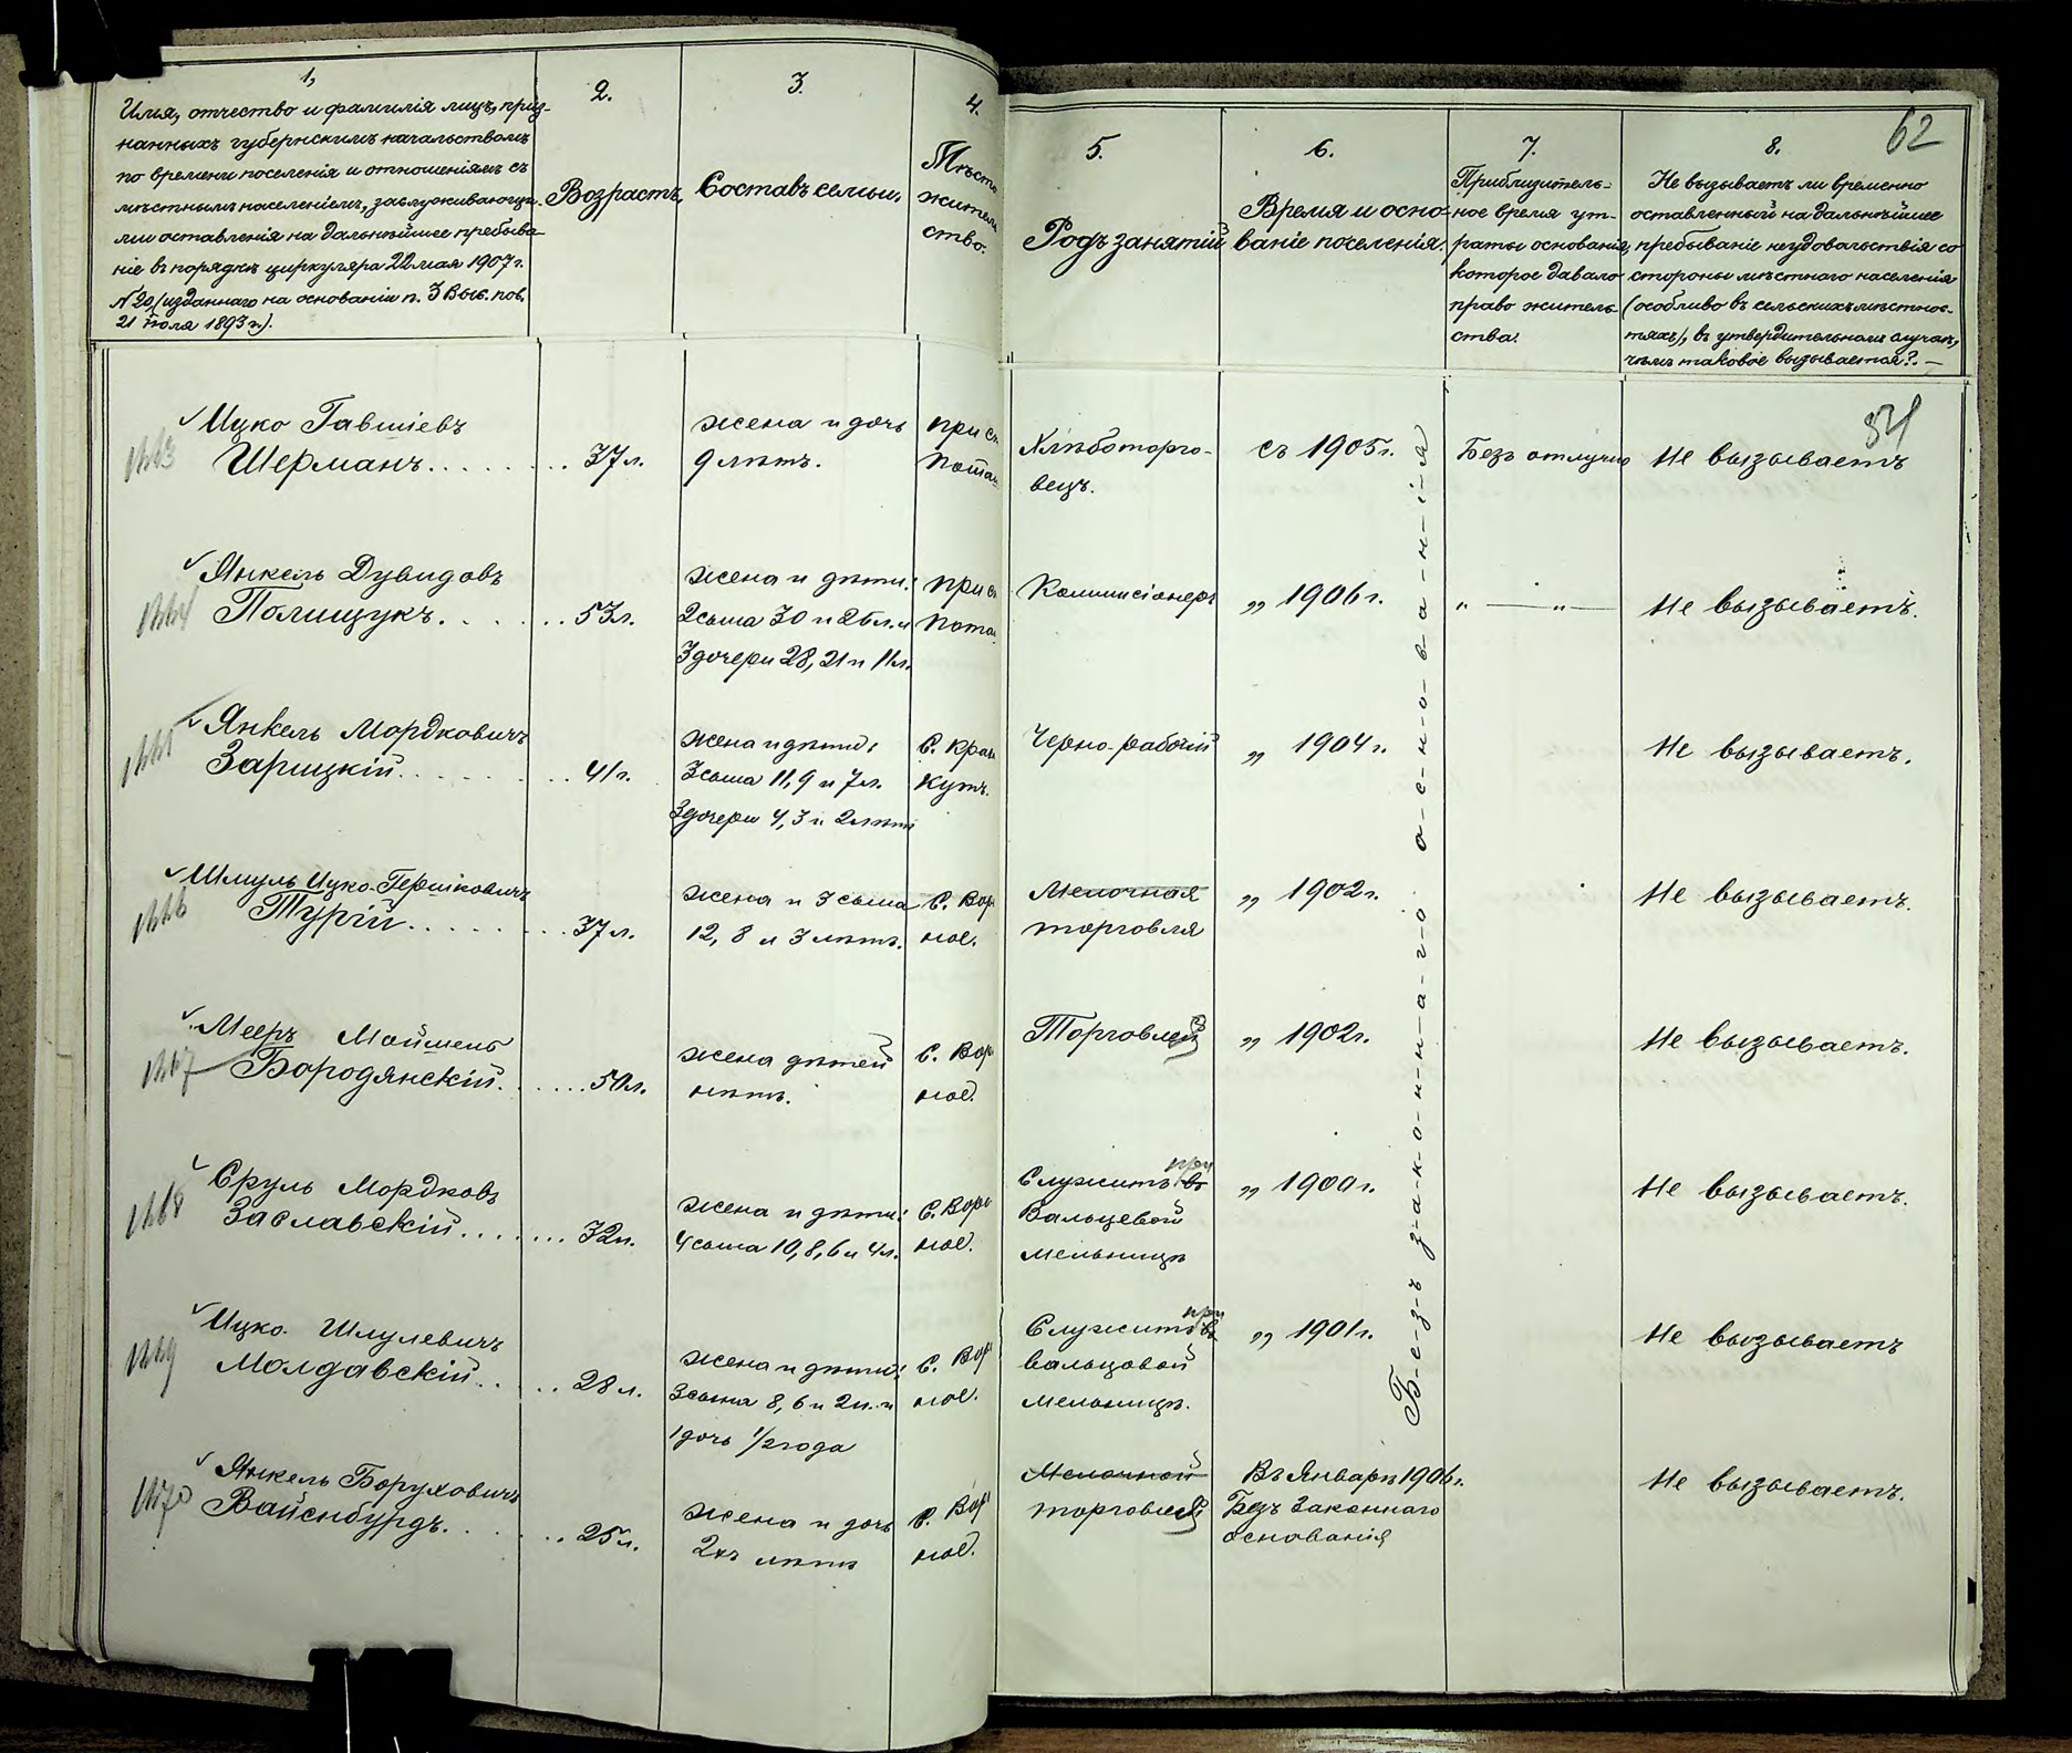 1,
Имя, отчество и фамилія лицъ, приз-
нанныхъ губернскимъ начальствомъ
по времени поселенія и отношеніямъ съ
мѣстнымъ населеніемъ, заслуживающи-
ми оставленія на дальнѣйшее пребыва-
ніе въ порядкѣ циркуляра 22 мая 1907 г.
№ 20 (изданнаго на основаніи п. 3 Выс. пов.
21 іюля 1893 г.).
2.
Возрастъ,
3.
Составъ семьи,
4.
Мѣсто
житель
ство.
5.
Родъ занятій
6.
Время и осно-
ваніе поселенія.
7.
Приблизитель-
ное время ут-
раты основанія,
которое давало
право житель-
ства.
8.
Не вызываетъ ли временно
оставленный на дальнѣйшее
пребываніе неудовольствія со
стороны мѣстнаго населенія
(особливо въ сельскихъ мѣстнос-
тяхъ), въ утвердительномъ случаѣ,
чѣмъ таковое вызывается?. —
62
Ицко Гавшіевъ
Шерманъ........
37 л.
жена и дочь
9 лѣтъ.
при ст.
Хлѣботорго-
вецъ.
съ 1905 г.
Безъ отлучно
Не вызываетъ
1664
Янкель Дувидовъ
Полищукъ......
53 л.
жена и дѣти:
2 сына 30 и 25 л. и
3 дочери 28, 21 и 11 л.
при ст
Комисіонеръ
„ 1906 г.
„ — „ —
Не вызываетъ.
Янкель Мордковичъ
Зарицкій........
41 г.
жена и дѣти:
3 сына 11, 9 и 7 л.
3 дочери 4, 3 и 2 лѣтъ
С. Крас
кутъ.
Черно-рабочій
„ 1904 г.
Не вызываетъ.
1666
Шмуль Ицко-Гершковичъ
Турій........
37 л.
жена и 3 сына
12, 8 и 3 лѣтъ.
С. Вор
ное.
Мелочная
торговля
„ 1902 г.
Не вызываетъ.
1667
Мееръ Мошешев
Бородянскій.......
50 л.
жена дѣтей
нѣтъ.
С. Вор
ное.
Торговлей
„ 1902 г.
Не вызываетъ.
1668
Сруль Мордковъ
Заславскій.......
32 л.
жена и дѣти:
4 сына 10, 8, 6 и 4 л.
С. Воро
ное.
при
Служитъ въ
Вальцевой
мельницѣ
„ 1900 г.
Не вызываетъ.
1669
Ицко Шмулевичъ
Молдавскій.....
28 л.
жена и дѣти:
3 сына 8, 6 и 2 л. и
1 дочь 1/2 года
С. Вор
ное.
при
Служитъ въ
вальцовой
мельницѣ.
„ 1901 г.
Не вызываетъ
1670
Янкель Боруховичъ
Вайснбурдъ.......
25 л.
жена и дочь
2хъ лѣтъ
С. Вор
ное.
Мелочной
торговлей
Въ Январѣ 1906 г.
Безъ Законнаго
основанія
Не вызываетъ.
Б-е-з-ъ з-а-к-о-н-н-а-г-о о-с-н-о-в-а-н-і-я